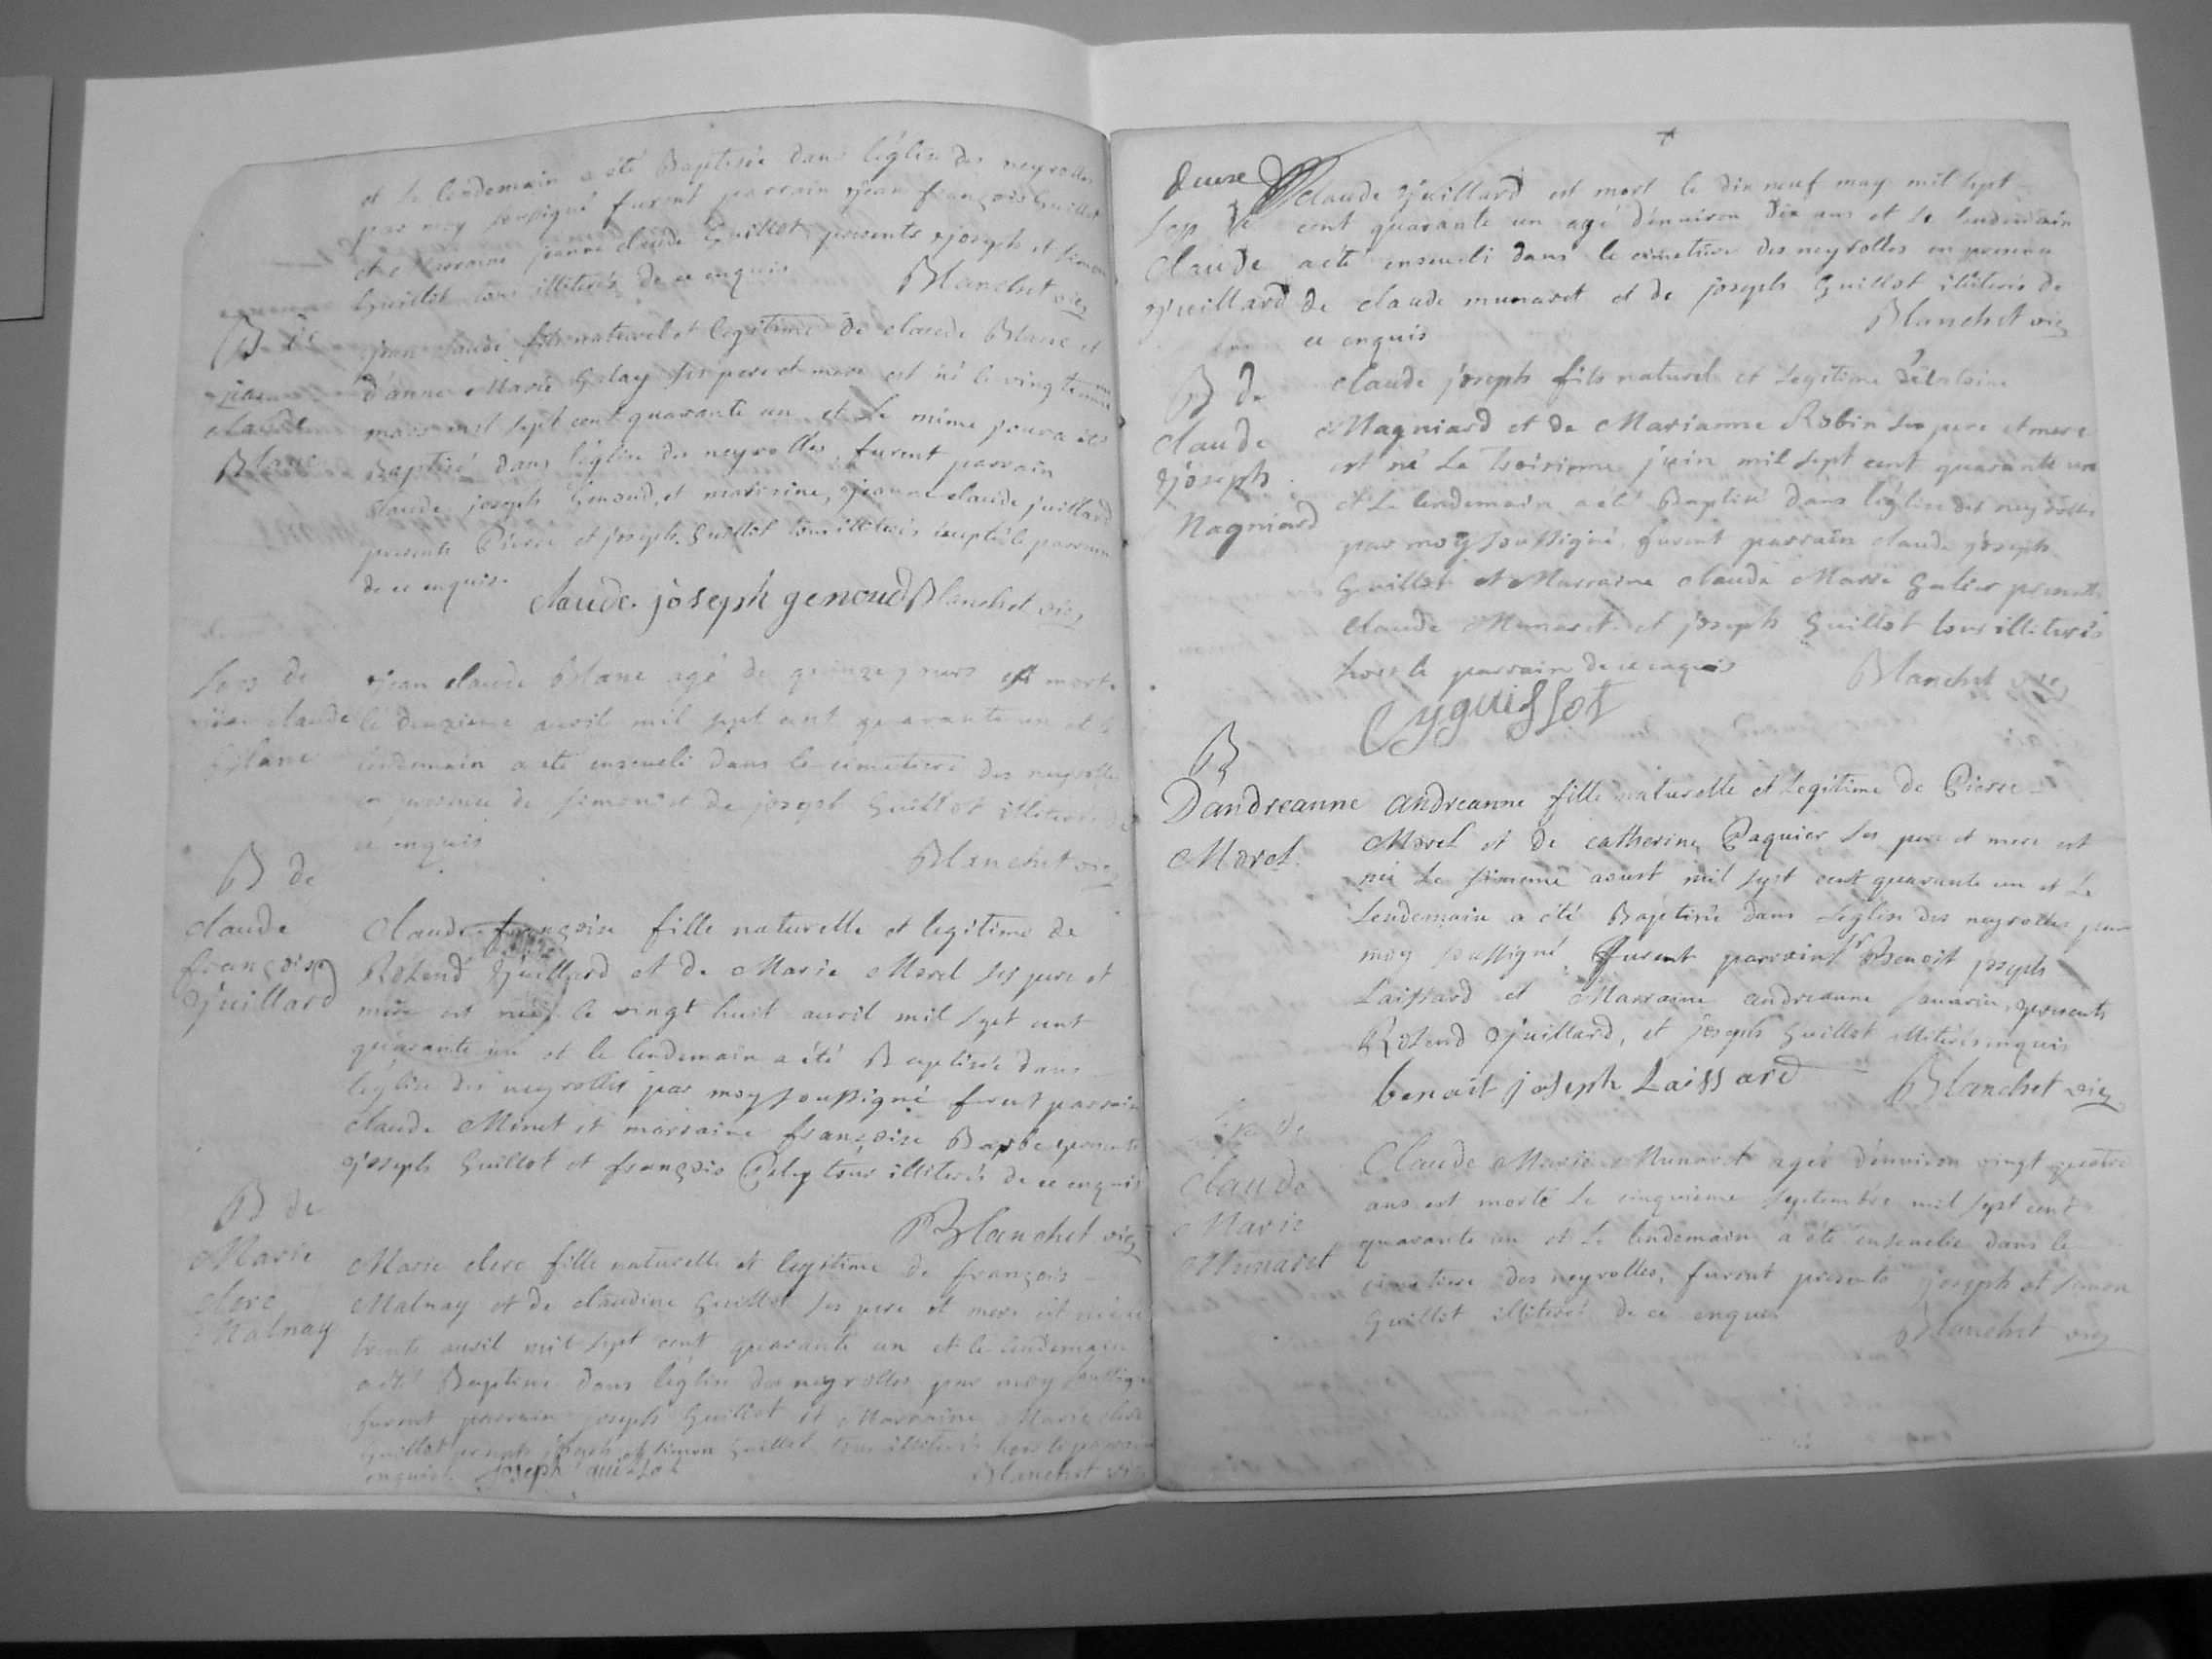 et le lendemain a été Baptisée dans l'église des neyrolles
par moy soussigné furent parrain jean françois Guillot
et Marraine jeanne claude Guillot presents joseph et simon
Guillot tous illiterés de ce enquis
Blanchet vic
B de
jean
claude
Blanc
jean claude fils naturel et legitime de claude Blanc et
d'anne Marie Golay ses pere et mere est né le vingt
mars mil sept cent quarante un et le même jour a été
Baptisé dans l'église des neyrolles, furent parrain
claude joseph Genoud, et marraine, jeanne claude juillard
presents Pierre et joseph Guillot tous illiterés excepté le parrain
de ce enquis
claude joseph genoud Blanchet vic
Sep de
jean claude
Blanc
jean claude Blanc agé de quinze jours est mort
le deuxieme avril mil sept cent quarante un et le
lendemain a été enseveli dans le cimetiere des neyrolles
en presence de simon et de joseph Guillot illiterés de
ce enquis
Blanchet vic
B de
claude
françoise
juillard
Claude françoise fille naturelle et legitime de
Rolend juillard et de Marie Morel ses pere et
mere est née le vingt huit avril mil sept cent
quarante un et le lendemain a été Baptisée dans
l'église des neyrolles par moy soussigné furent parrain
claude Minet et marraine françoise Barbe presents
joseph Guillot et françois tous illiterés de ce enquis
Blanchet vic
B de
Marie
clere
Malnay
Marie clere fille naturelle et legitime de françois
Malnay et de claudine Guillot ses pere et mere est née le
trente avril mil sept cent quarante un et le lendemain
a été Baptisée dans l'église des neyrolles par moy soussigné
furent parrain joseph Guillot et Marraine Marie clere
Guillot presents joseph et simon Guillot tous illiterés hors le parrain
enquis joseph guillot
Blanchet vic
douze
Sep de
Claude
juillard
Claude juillard est mort le dix neuf may mil sept
cent quarante un agé d'environ dix ans et le lendemain
a été enseveli dans le cimetiere des neyrolles en presence
de claude munaret et de joseph Guillot illiterés de
ce enquis
Blanchet vic
B de
claude
joseph
Magniard
claude joseph fils naturel et legitime
Magniard et de Marianne Robin ses pere et mere
est né le troisieme juin mil sept cent quarante un
et le lendemain a été Baptisé dans l'église des neyrolles
par moy soussigné furent parrain claude joseph
Guillot et Marraine claude Marie presents
claude Munaret et joseph Guillot tous illiterés
hors le parrain de ce enquis
Blanchet vic
Cyguissot
B
D'andreanne
Morel
andreanne fille naturelle et legitime de Pierre
Morel et de catherine Paquier ses pere et mere est
née le aoust mil sept cent quarante un et le
lendemain a été Baptisée dans l'église des neyrolles par
moy soussigné furent parrain Sr Benoit joseph
Laissard et Marraine andreanne presents
Rolend juillard, et joseph Guillot illiterés enquis
benoit joseph Laissard
Blanchet vic
Sep de
Claude
Marie
Munaret
Claude Marie Munaret agée d'environ vingt quatre
ans est morte le cinquieme septembre mil sept cent
quarante un et le lendemain a été ensevelie dans le
cimetiere des neyrolles, furent presents joseph et simon
Guillot illiterés de ce enquis
Blanchet vic